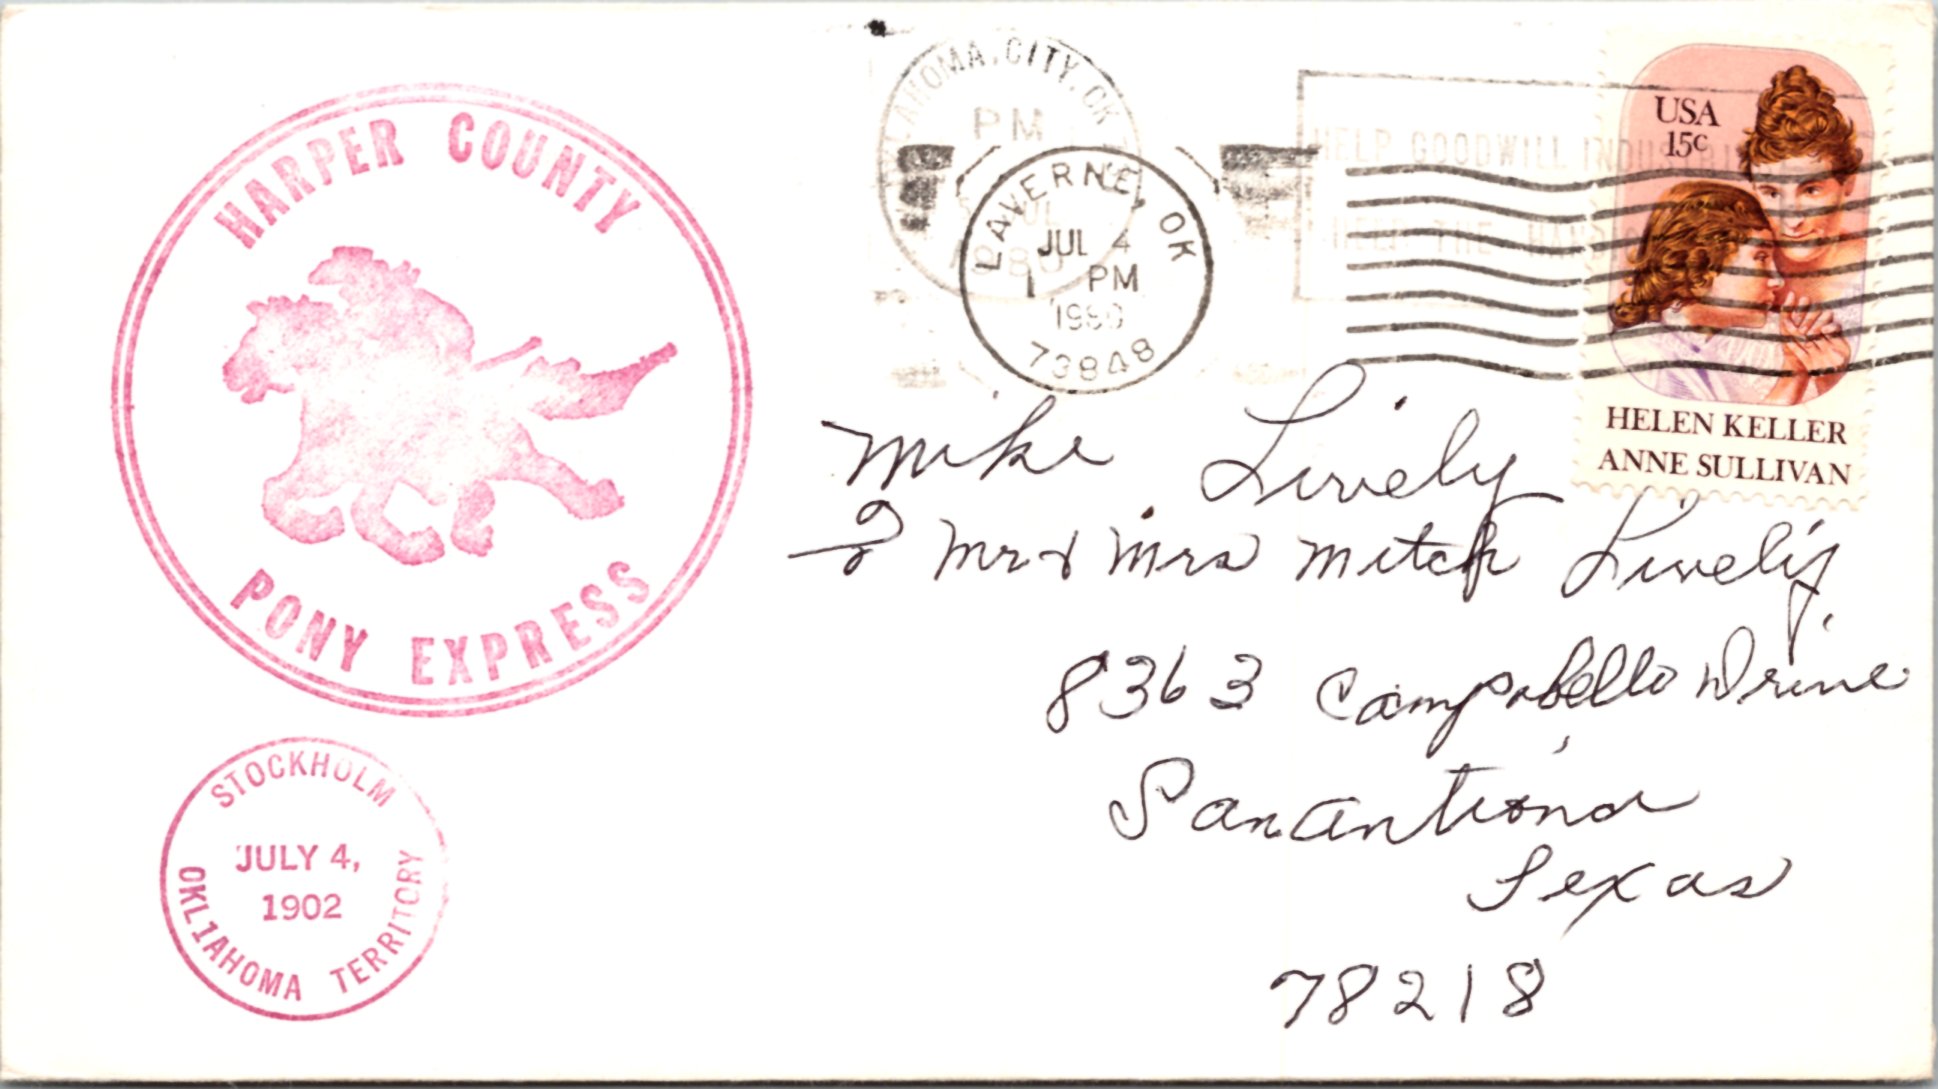 HARPER COUNTY
PONY EXPRESS
STOCKHOLM
JULY 4,
1902
OKL1AHOMA TERRITORY
LAHOMA, CITY, OK
PM
LAVERNE, OK
JUL 4
1 PM
1980
73848
HELP GOODWILL INDUSTRI
HELP THE HANDIC
USA
15c
HELEN KELLER
ANNE SULLIVAN
Mike Lively
% Mr & Mrs Mitch Lively
8363 Campobello Drive
San Antiono
Texas
78218